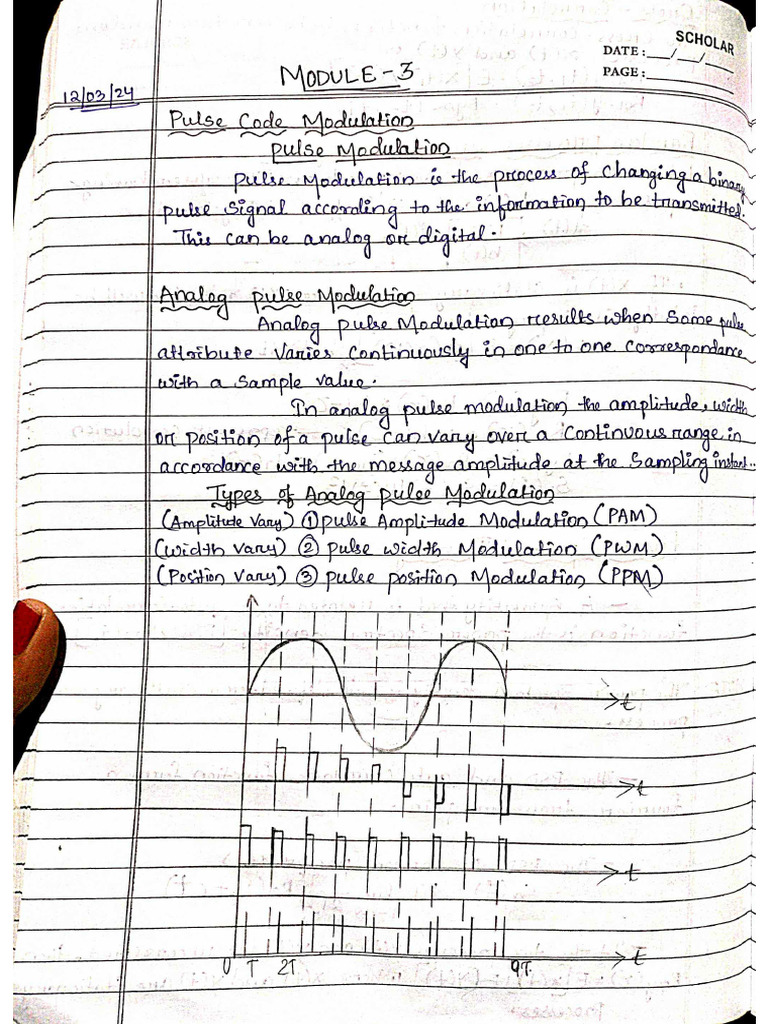 SCHOLAR
DATE: __/__/__
PAGE: ______
MODULE-3
12/03/24
Pulse Code Modulation
Pulse Modulation
Pulse Modulation is the process of changing a binary
pulse signal according to the information to be transmitted.
This can be analog or digital.
Analog pulse Modulation
Analog pulse Modulation results when some pulse
attribute varies continuously in one to one correspondance
with a sample value.
In analog pulse modulation the amplitude, width
or position of a pulse can vary over a continuous range in
accordance with the message amplitude at the sampling instant..
Types of Analog pulse Modulation
(Amplitude Vary) ① pulse Amplitude Modulation (PAM)
(width vary) ② pulse width Modulation (PWM)
(Position vary) ③ pulse position Modulation (PPM)
t
t
t
t
0 T 2T 9T.